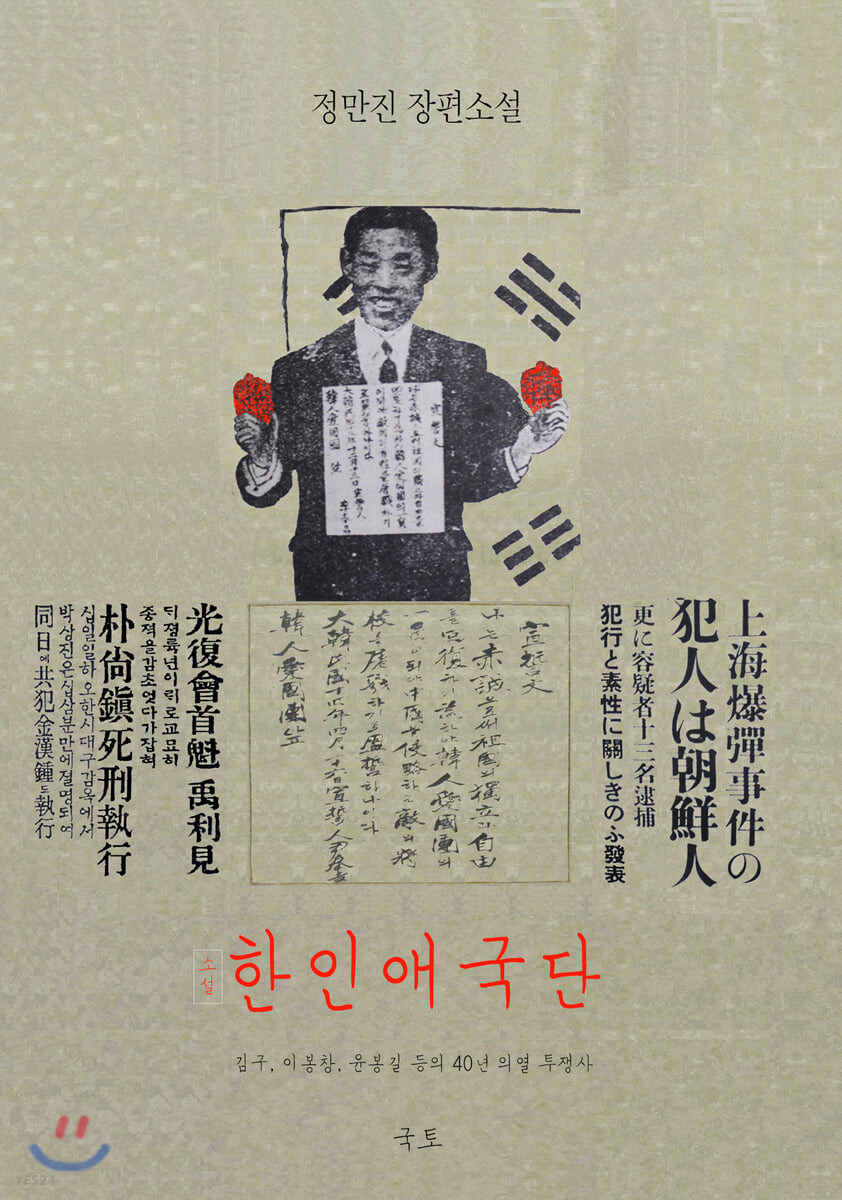 정만진 장편소설
宣誓文
韓人愛國團 앞
上海爆彈事件の
犯人は朝鮮人
更に容疑者十三名逮捕
犯行と素性に關しきのふ發表
宣誓文
나는 赤誠으로써 祖國의 獨立과 自由
를 回復하기 爲하야 韓人愛國團의
一員이 되야 中國을 侵略하는 敵의 將
校를 屠戮하기로 盟誓하나이다
大韓民國十四年四月二十六日 宣誓人 尹奉吉
韓人愛國團앞
光復會首魁 禹利見
종젹을감초엇다가잡혀
朴尙鎭死刑執行
십일일하오한시대구감옥에서
박상진은십삼분만에졀명되여
同日에共犯金漢鍾도執行
소설
한인애국단
김구, 이봉창, 윤봉길 등의 40년 의열 투쟁사
국토
YES24